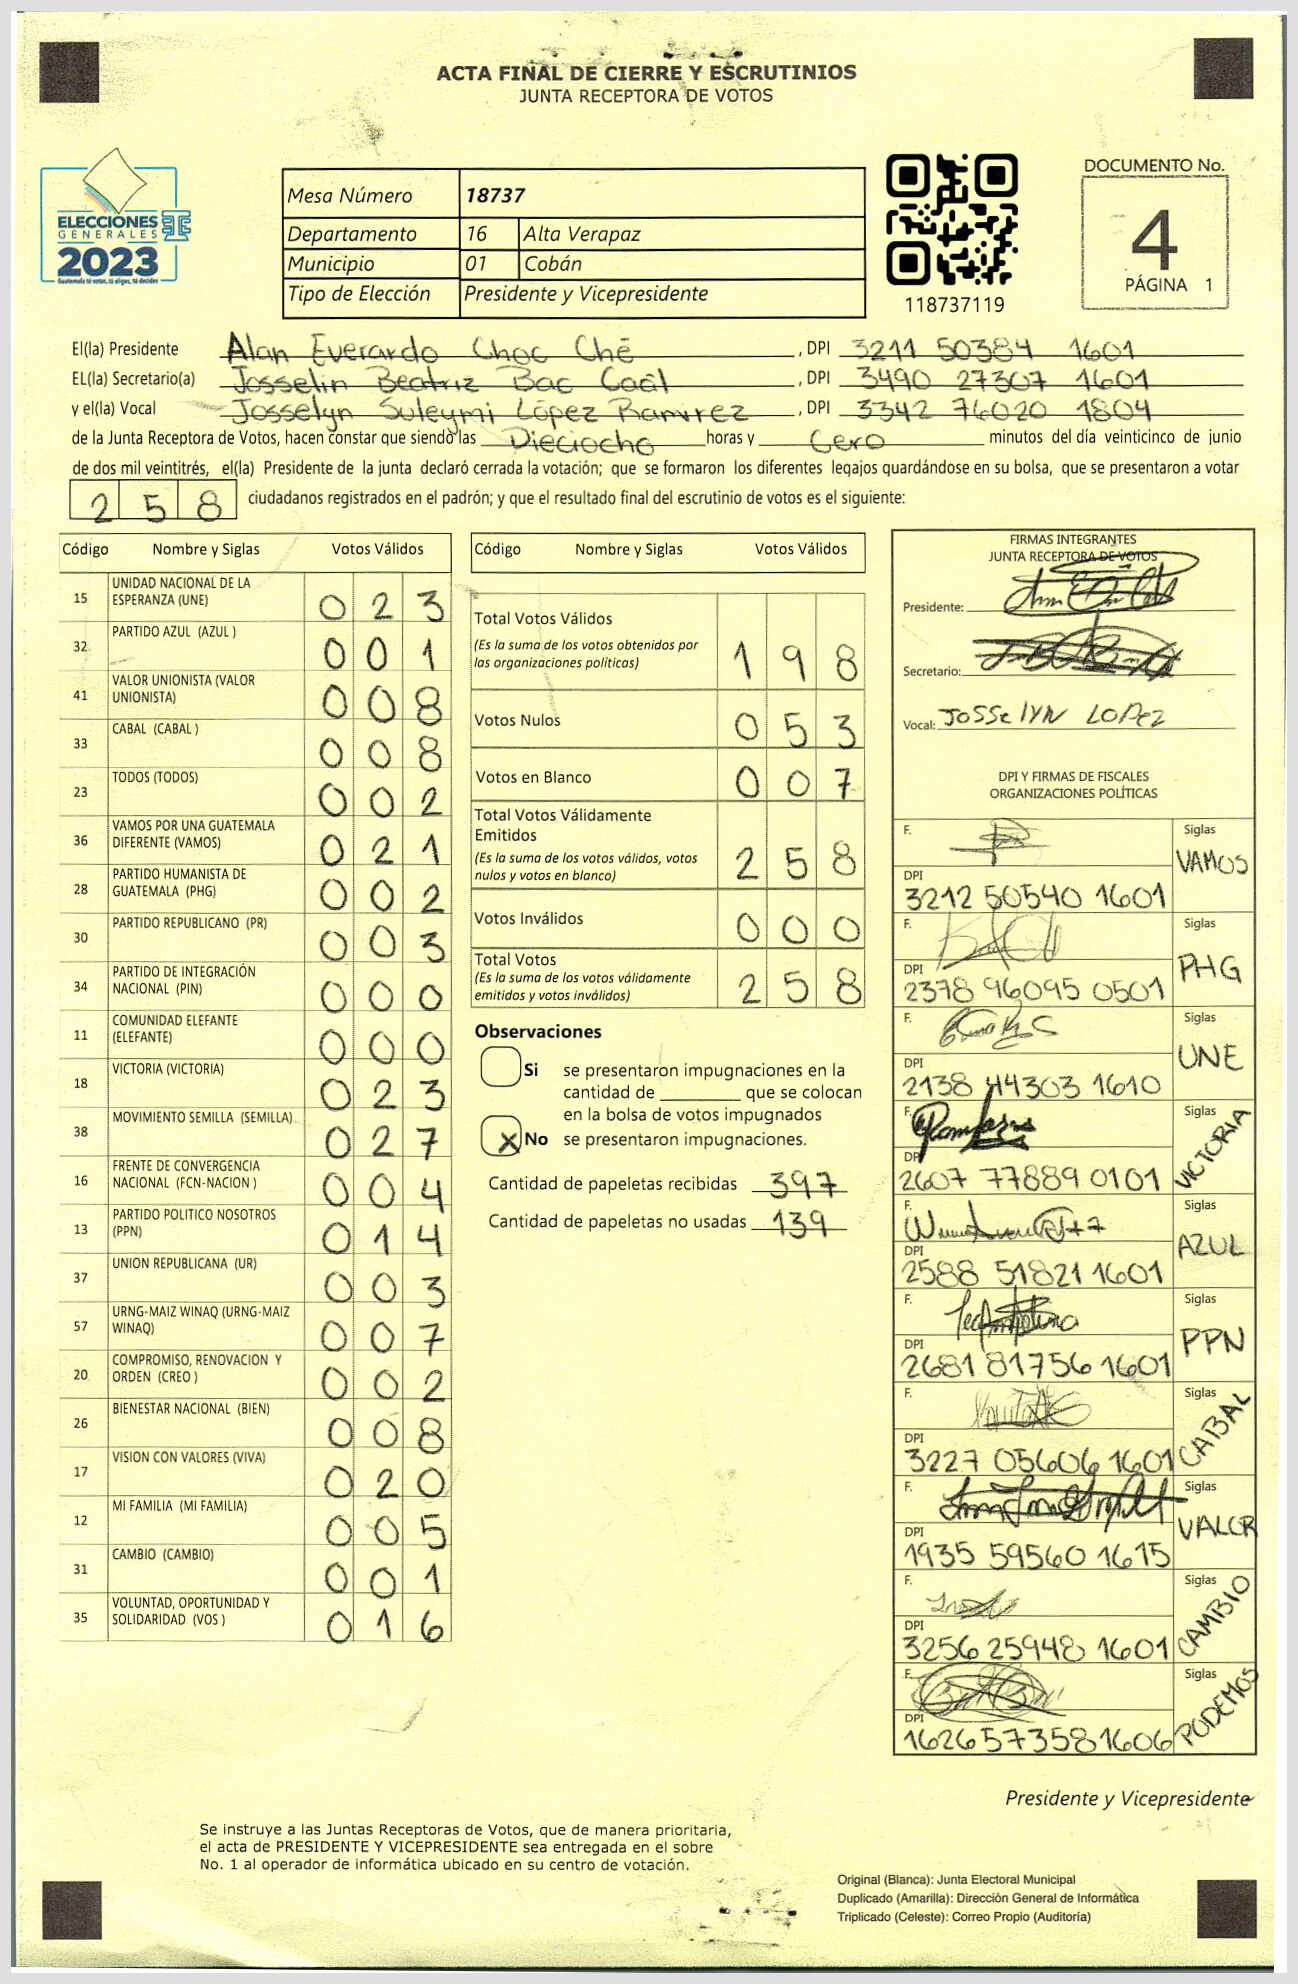 ACTA FINAL DE CIERRE Y ESCRUTINIOS
JUNTA RECEPTORA DE VOTOS
ELECCIONES
GENERALES
2023
Guatemala tú votas, tú eliges, tú decides
Mesa Número 18737
Departamento 16 Alta Verapaz
Municipio 01 Cobán
Tipo de Elección Presidente y Vicepresidente
118737119
DOCUMENTO No.
4
PÁGINA 1
El(la) Presidente Alan Everardo Choc Ché , DPI 3211 50384 1601
EL(la) Secretario(a) Josselin Beatriz Bac Caal , DPI 3490 27307 1601
y el(la) Vocal Josselyn Suleymi López Ramirez , DPI 3342 76020 1804
de la Junta Receptora de Votos, hacen constar que siendo las Dieciocho horas y Cero minutos del día veinticinco de junio
de dos mil veintitrés, el(la) Presidente de la junta declaró cerrada la votación; que se formaron los diferentes legajos guardándose en su bolsa, que se presentaron a votar
258 ciudadanos registrados en el padrón; y que el resultado final del escrutinio de votos es el siguiente:
Código Nombre y Siglas Votos Válidos
15 UNIDAD NACIONAL DE LA ESPERANZA (UNE) 023
32 PARTIDO AZUL (AZUL ) 001
41 VALOR UNIONISTA (VALOR UNIONISTA) 008
33 CABAL (CABAL ) 008
23 TODOS (TODOS) 002
36 VAMOS POR UNA GUATEMALA DIFERENTE (VAMOS) 021
28 PARTIDO HUMANISTA DE GUATEMALA (PHG) 002
30 PARTIDO REPUBLICANO (PR) 003
34 PARTIDO DE INTEGRACIÓN NACIONAL (PIN) 000
11 COMUNIDAD ELEFANTE (ELEFANTE) 000
18 VICTORIA (VICTORIA) 023
38 MOVIMIENTO SEMILLA (SEMILLA) 027
16 FRENTE DE CONVERGENCIA NACIONAL (FCN-NACION ) 004
13 PARTIDO POLITICO NOSOTROS (PPN) 014
37 UNION REPUBLICANA (UR) 003
57 URNG-MAIZ WINAQ (URNG-MAIZ WINAQ) 007
20 COMPROMISO, RENOVACION Y ORDEN (CREO ) 002
26 BIENESTAR NACIONAL (BIEN) 008
17 VISION CON VALORES (VIVA) 020
12 MI FAMILIA (MI FAMILIA) 005
31 CAMBIO (CAMBIO) 001
35 VOLUNTAD, OPORTUNIDAD Y SOLIDARIDAD (VOS ) 016
Código Nombre y Siglas Votos Válidos
Total Votos Válidos 198
(Es la suma de los votos obtenidos por
las organizaciones políticas)
Votos Nulos 053
Votos en Blanco 007
Total Votos Válidamente
Emitidos 258
(Es la suma de los votos válidos, votos
nulos y votos en blanco)
Votos Inválidos 000
Total Votos 258
(Es la suma de los votos válidamente
emitidos y votos inválidos)
Observaciones
Si se presentaron impugnaciones en la
cantidad de ________ que se colocan
en la bolsa de votos impugnados
X No se presentaron impugnaciones.
Cantidad de papeletas recibidas 397
Cantidad de papeletas no usadas 139
FIRMAS INTEGRANTES
JUNTA RECEPTORA DE VOTOS
Presidente:
Secretario:
Vocal: Josselyn Lopez
DPI Y FIRMAS DE FISCALES
ORGANIZACIONES POLÍTICAS
F. Siglas VAMOS
DPI 3212 50540 1601
F. Siglas PHG
DPI 2378 96095 0501
F. Siglas UNE
DPI 2138 44303 1610
F. Siglas VICTORIA
DPI 2607 77889 0101
F. Siglas AZUL
DPI 2588 51821 1601
F. Siglas PPN
DPI 2681 81756 1601
F. Siglas CABAL
DPI 3227 05606 1601
F. Siglas VALOR
DPI 1935 59560 1615
F. Siglas CAMBIO
DPI 3256 25948 1601
F. Siglas PODEMOS
DPI 1626573581606
Presidente y Vicepresidente
Se instruye a las Juntas Receptoras de Votos, que de manera prioritaria,
el acta de PRESIDENTE Y VICEPRESIDENTE sea entregada en el sobre
No. 1 al operador de informática ubicado en su centro de votación.
Original (Blanca): Junta Electoral Municipal
Duplicado (Amarilla): Dirección General de Informática
Triplicado (Celeste): Correo Propio (Auditoría)